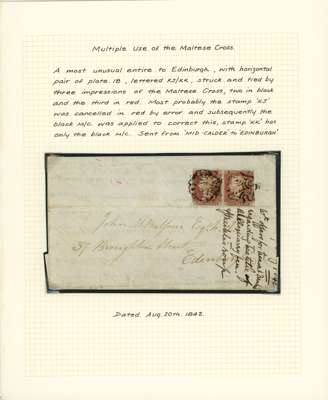 Multiple Use of the Maltese Cross
A most unusual entire to Edinburgh, with horizontal
pair of plate 18, lettered KJ/KK, struck and tied by
three impressions of the Maltese Cross, two in black
and the third in red. Most probably the stamp 'KJ'
was cancelled in red by error and subsequently the
black M/C was applied to correct this, stamp 'KK' has
only the black M/C. Sent from 'MID-CALDER' to 'EDINBURGH'
John M Balfour Esq
59 Broughton Street
Edin
Dated. Aug. 20th. 1842.